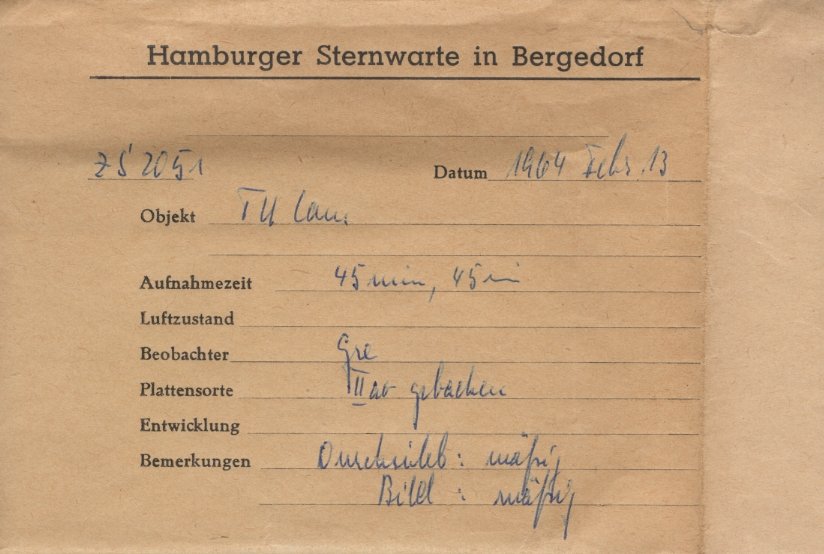 Hamburger Sternwarte in Bergedorf
ZS 2051 Datum 1964 Febr. 13
Objekt TU Cam.
Aufnahmezeit 45 min, 45 min
Luftzustand
Beobachter Gre
Plattensorte IIao gebacken
Entwicklung
Bemerkungen Durchsicht: mäßig
Bild : mäßig